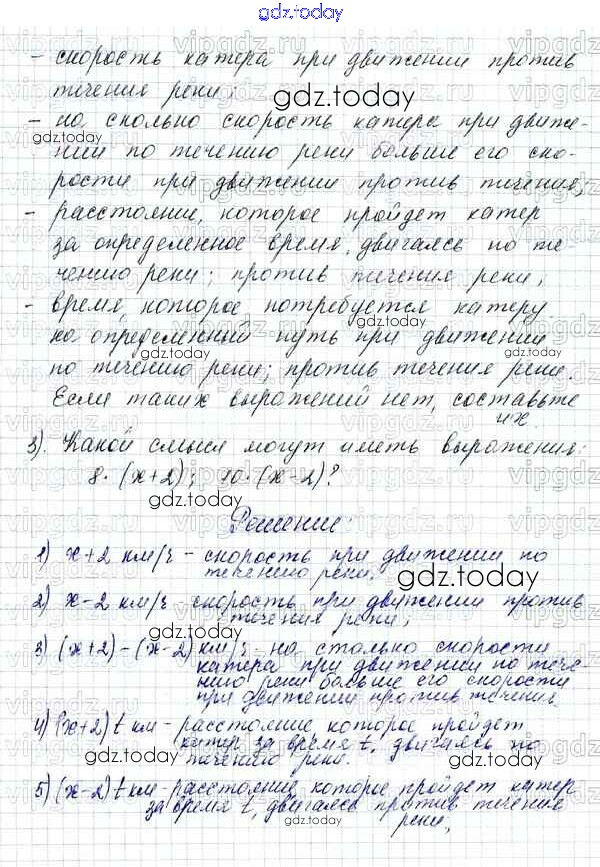 gdz.today
- скорость катера при движении против
течения реки;
- на сколько скорость катера при движе-
нии по течению реки больше его ско-
рости при движении против течения;
- расстояние, которое пройдет катер
за определенное время, двигаясь по те-
чению реки; против течения реки;
- время, которое потребуется катеру
на определенный путь при движении
по течению реки; против течения реки.
Если таких выражений нет, составьте
их.
3). Какой смысл могут иметь выражения:
8·(x+2); 10·(x-2)?
Решение:
1) x+2 км/ч - скорость при движении по
течению реки;
2) x-2 км/ч - скорость при движении против
течения реки;
3) (x+2)-(x-2) км/ч - на столько скорости
катера при движении по тече-
нию реки больше его скорости
при движении против течения
4) (x+2)t км - расстояние которое пройдет
катер за время t, двигаясь по
течению реки.
5) (x-2)t км - расстояние, которое пройдет катер
за время t, двигаясь против течения
реки;